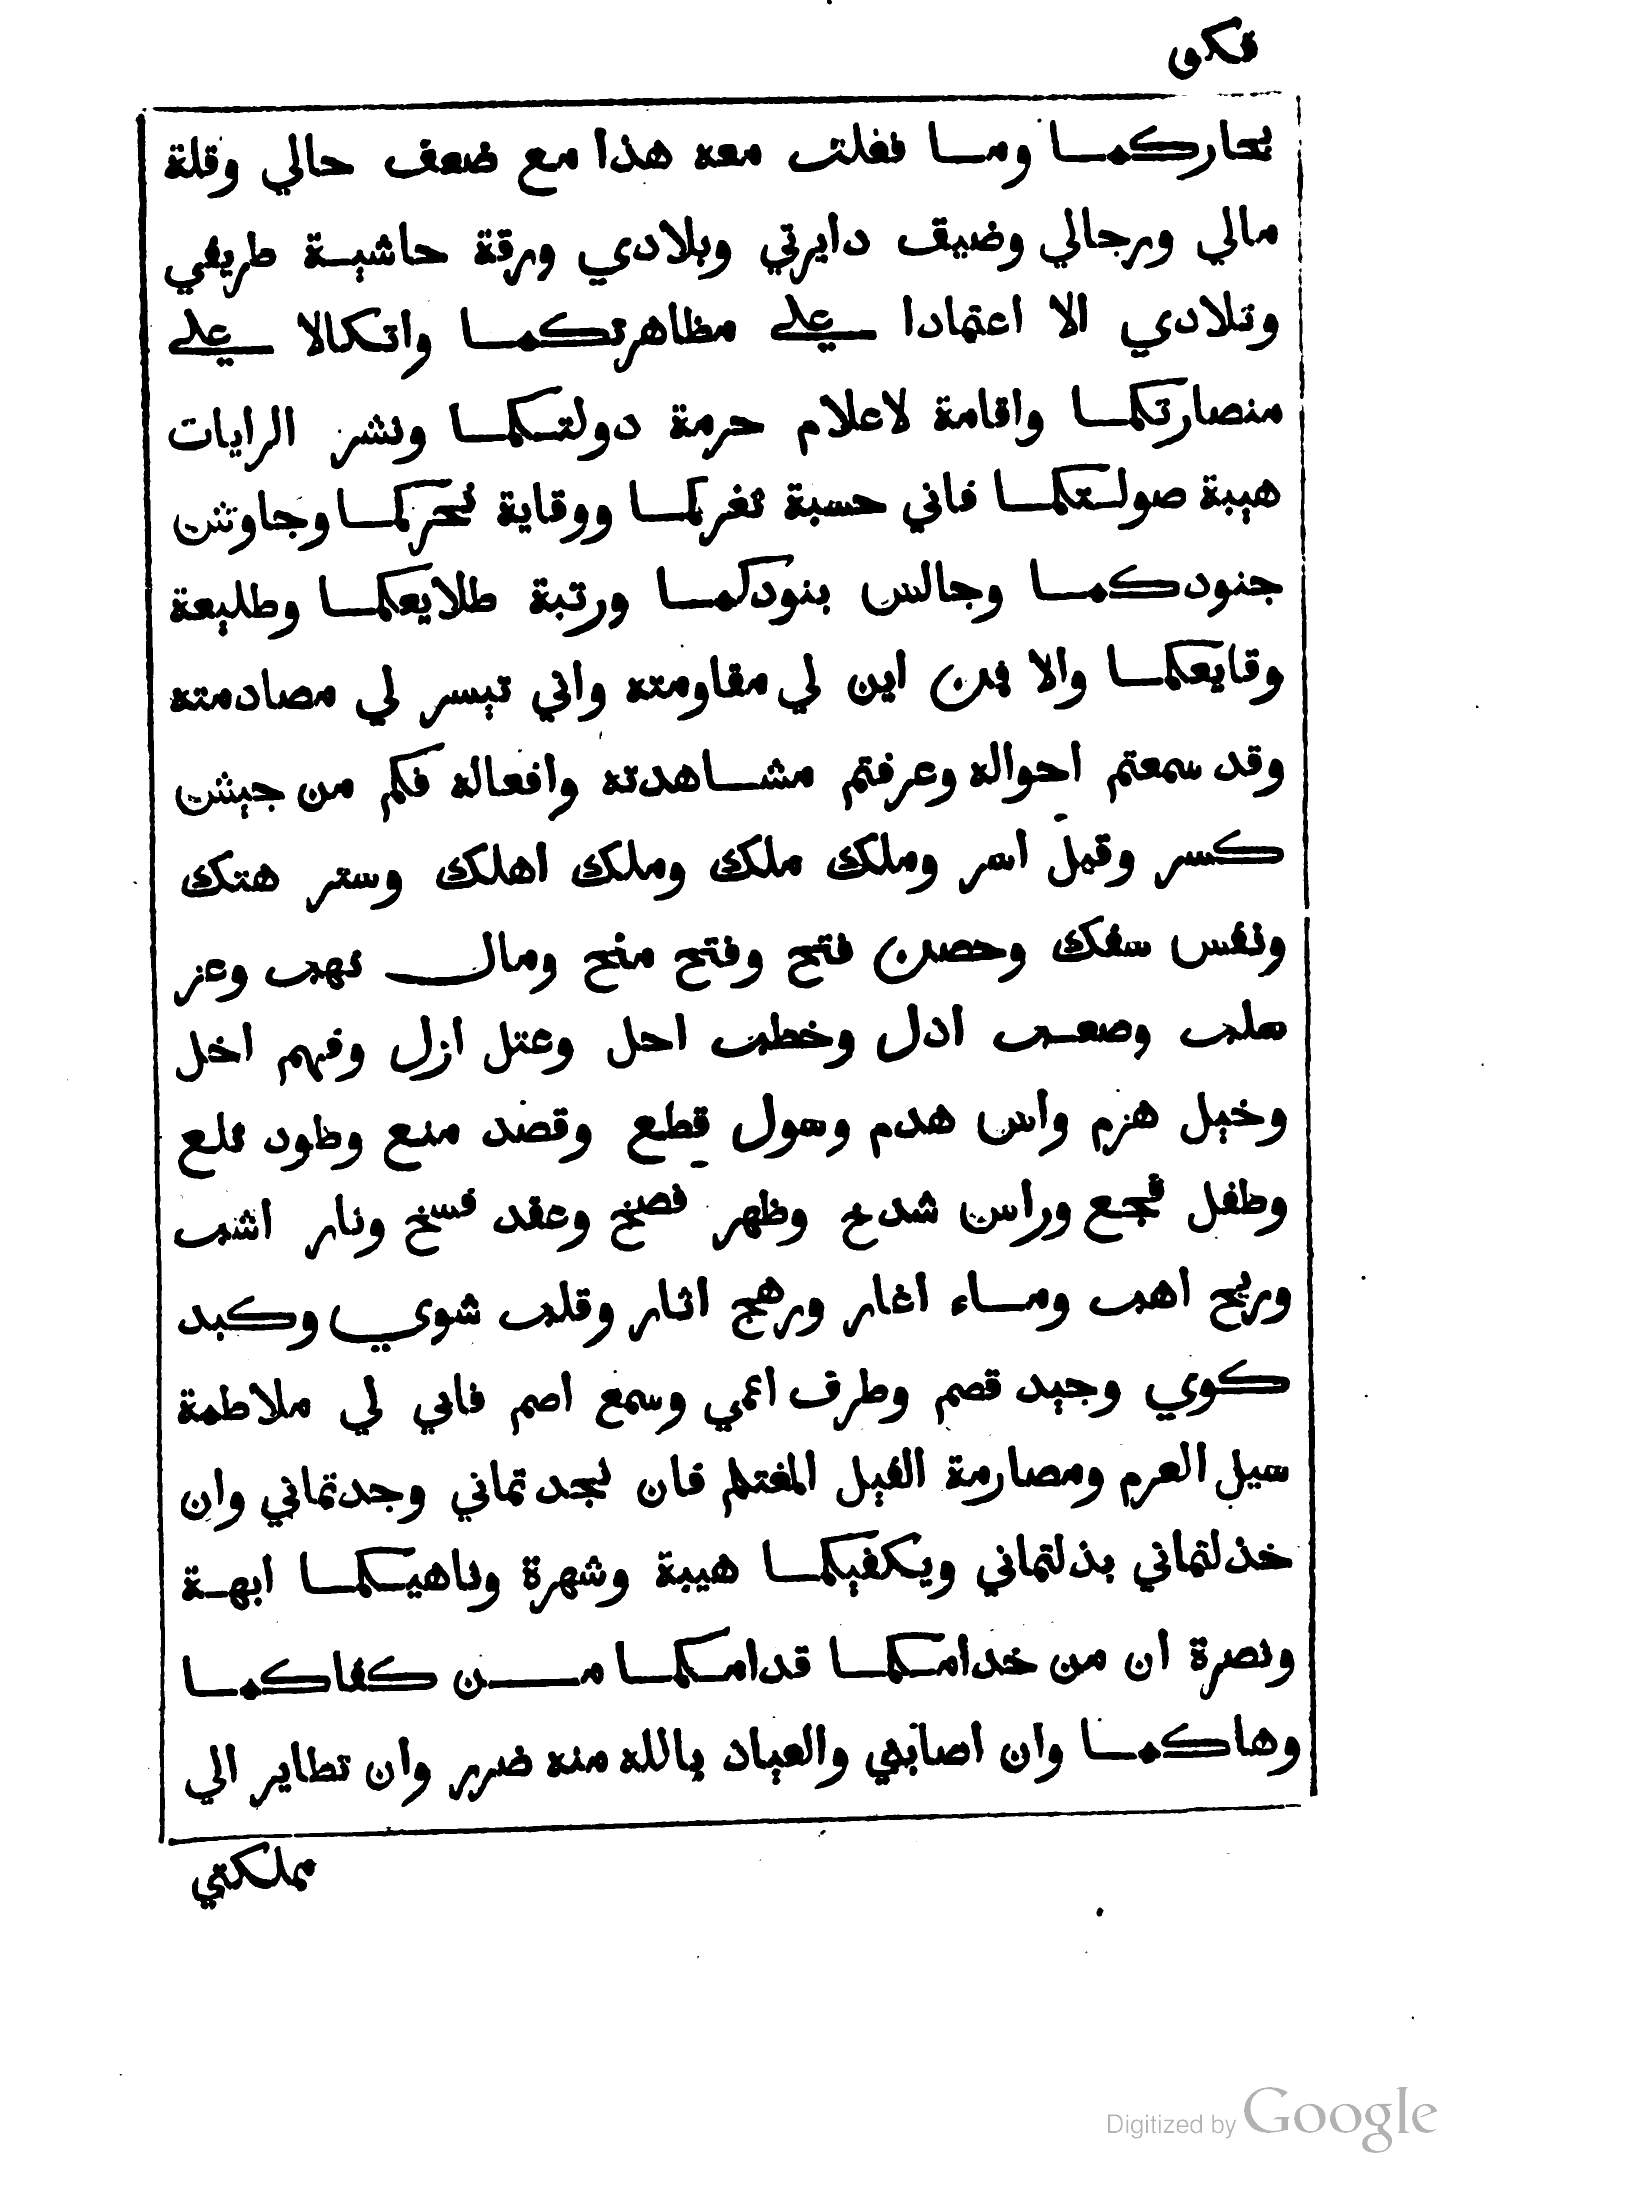 بحاركمـا ومـا فعلت معه هذا مع ضعف حالي وقلة
مالي ورجالي وضيق دايرتي وبلادي ورقة حاشية طريفي
وتلادي الا اعتمادا علي مظاهرتكما واتكالا علي
منصارتكما واقامة لاعلام حرمة دولتكما ونشر الرايات
هيبة صولتكما فاني حسبة ثغركما ووقاية نحركما وجاوش
جنودكما وجالس بنودكما ورتبة طلايعكما وطليعة
وقايعكما والا فمن اين لي مقاومته واني تيسر لي مصادمته
وقد سمعتم احواله وعرفتم مشاهدته وافعاله فكم من جيش
كسر وقيل اسر وملك ملك وملك اهلك وستر هتك
ونفس سفك وحصن فتح وفتح منح ومال نهب وعز
سلب وصعب اذل وخطب احل وعتل ازل وفهم اخل
وخيل هزم واس هدم وسول قطع وقصد منع وطود قلع
وطفل فجع وراس شدخ وظهر فصخ وعقد فسخ ونار اشب
وريح اهب وماء اغار ورهج اثار وقلب شوي وكبد
كوي وجيد قصم وطرف اعمي وسمع اصم فاني لي ملاطمة
سيل العرم ومصارمة الفيل المغتلم فان نجدتماني وجدتماني وان
خذلتماني بذلتماني ويكفيكما هيبة وشهرة وناهيكما ابهة
ونصرة ان من خدامكما قدامكما من كفاكما
وهاكما وان اصابني والعياذ بالله منه ضرر وان تطاير الي
مملكتي
Digitized by Google